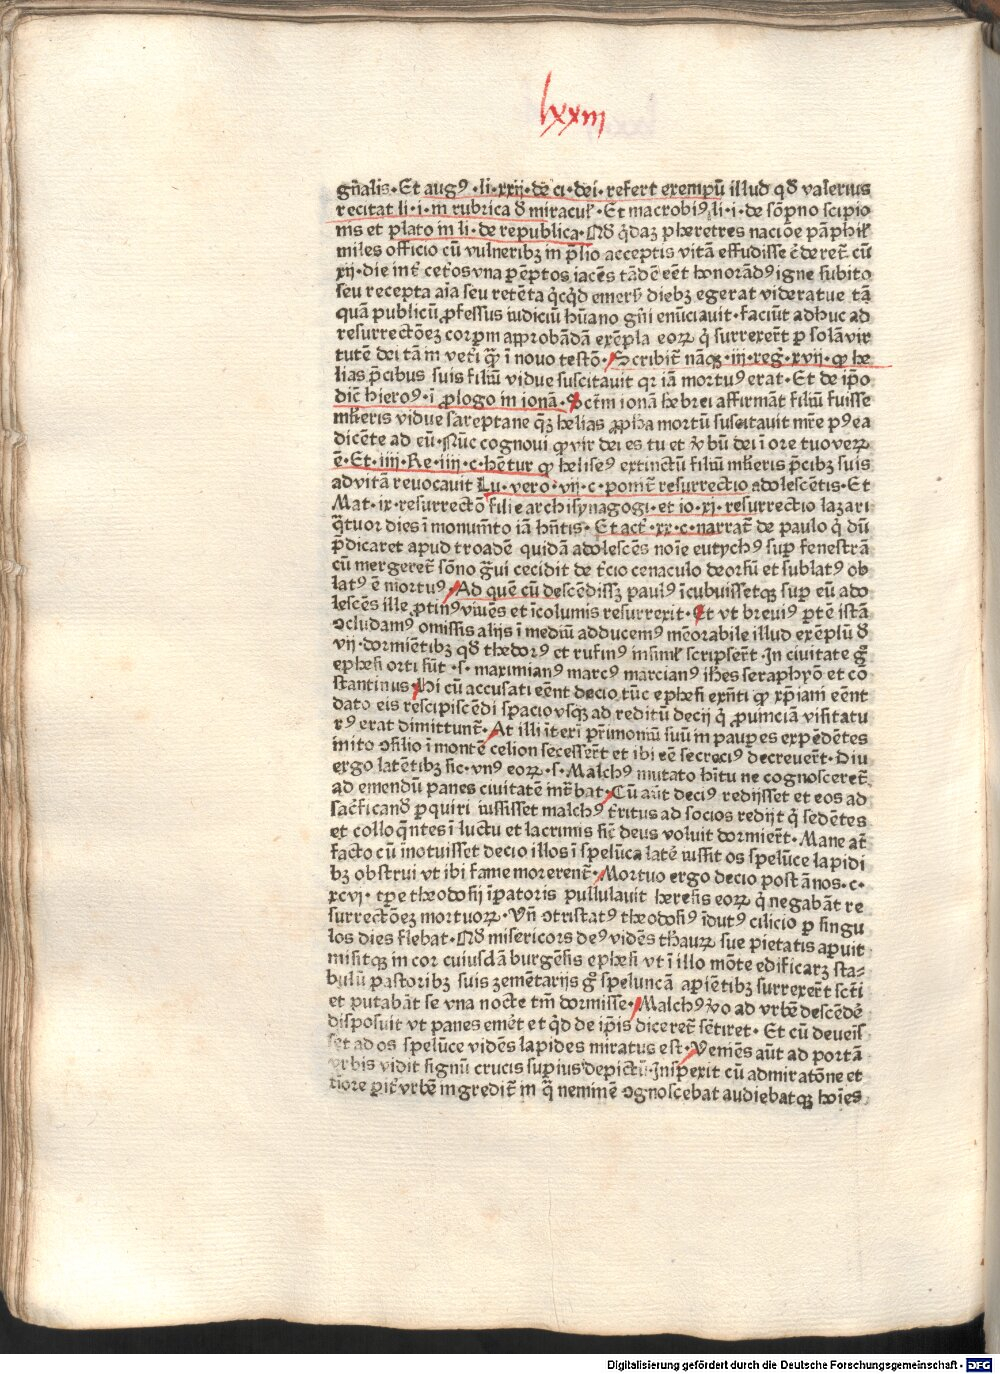 lxxiii
gn̄alis·Et augꝰ·li·xxii·de ci·dei·refert exempū illud qđ valerius
recitat li·i·in rubrica đ miracul̛·Et macrobiꝰ li·i·de sōpno scipio
nis et plato in li·de republica·Nđ q̇daꝫ pheretres nacōe pāphil̛
miles officio cū vulneribꝫ in p̄lio acceptis vitā effudisse c̄deret̄ cū
xij·die int̄ cet̄os vna pēptos iacēs tādē eēt honorādꝰ igne subito
seu recepta aīa seu retēta q̇cq̇d emersꝰ diebꝫ egerat videratue tā
quā publicū ꝓfessus iudiciū hūano gn̄i enūciauit·faciūt adhuc ad
resurrectōeꝫ corꝑm approbādā exēpla eoꝝ q̇ surrexer̄t ꝑ solā vir
tutē dei tā in vet̄i ꝙ̄ ī nouo testō·Scribit̄ nāqꝫ·iii·reg̛·xvii·ꝙ he
lias p̄cibus suis filiū vidue suscitauit qr iā mortuꝰ erat·Et de ip̄o
dic̄ hieroꝰ·ī ꝓlogo in ionā·Sctm̄ ionā hebrei affirmāt filiū fuisse
ml̛ieris vidue sareptane q̄ꝫ helias ꝓpha mortū suscitauit mr̄e pꝰea
dicēte ad eū·Nūc cognoui ꝙ vir dei es tu et v̇bū dei ī ore tuo veꝝ
ē·Et·iiii·Re·iiii·c·hn̄tur ꝙ heliseꝰ extinctū filiū ml̛ieris p̄cibꝫ suis
ad vitā reuocauit Lu·vero·vii·c·ponit̄ resurrectio adolescētis·Et
Mat·ix·resurrectō filie archisynagogi·et io·xi·resurrectio lazari
q̄tuor dies ī monum̄to iā hn̄tis·Et act̄·xx·c·narrat̄ de paulo q̇ dū
p̄dicaret apud troadē quidā adolescēs noīe eutychꝰ suꝑ fenestrā
cū mergeret̄ sōno ḡui cecidit de t̄cio cenaculo deorsū et sublatꝰ ob
latꝰ ē mortuꝰ·Ad quē cū descēdissꝫ paulꝰ īcubuissetqꝫ suꝑ eū ado
lescēs ille ꝓtinꝰ viuēs et īcolumis resurrexit·Et vt breuiꝰ ꝑtē istā
ↄcludamꝰ omissis alijs ī mediū adducemꝰ mēorabile illud exēplū đ
vij·dormiētibꝫ qđ thedorꝰ et rufinꝰ insimł scripser̄t·In ciuitate g̊
ephesi orti sūt·s·maximianꝰ marcꝰ marcianꝰ ioh̄es seraphyō et cō
stantinus·Hi cū accusati eēnt decio tūc ephesi exn̄ti ꝙ xp̄iani eēnt
dato eis rescipiscēdi spacio vsqꝫ ad reditū decij q̇ ꝓuinciam visitatu
rꝰ erat dimittunt̄·At illi īterī pr̄imoniū suū in pauꝑes expēdētes
inito ↄsilio ī montē celion secesser̄t et ibi eē secreciꝰ decreuer̄t·Diu
ergo latētibꝫ sic·vnꝰ eoꝝ·s·Malchꝰ mutato hītu ne cognosceret̄
ad emendū panes ciuitatē int̄bat·Cū aūt deciꝰ redijsset et eos ad
sac̄ficandū ꝑquiri iussisset malchꝰ t̄ritus ad socios redijt q̇ sedētes
et colloq̄ntes ī luctu et lacrimis sic̄ deus voluit dormier̄t·Mane at̄
facto cū inotuisset decio illos ī spelūca latē iussit os spelūce lapidi
bꝫ obstrui vt ibi fame morerent̄·Mortuo ergo decio post ānos·c·
xcvi·tꝑe theodosij īꝑatoris pullulauit heresis eoꝝ q̇ negabāt re
surrectōeꝫ mortuoꝝ·Vn̄ ↄtristatꝰ theodosiꝰ īdutꝰ cilicio ꝑ singu
los dies flebat·Nđ misericors deꝰ vidēs thauꝝ sue pietatis aꝑuit
misitqꝫ in cor cuiusdā burgēsis ephesi vt ī illo mōte edificarꝫ sta-
bulū pastoribꝫ suis zemētarijs g̊ speluncā aꝑiētibꝫ surrexer̄t scti
et putabāt se vna nocte tm̄ dormisse·Malchꝰ v̇o ad vrbē descēdē
disposuit vt panes emēt et q̇d de ip̄is diceret̄ sētiret·Et cū deueis̄
set ad os spelūce vidēs lapides miratus est·Veniēs aūt ad portā
vrbis vidit signū crucis suꝑius depictū·Insꝑexit cū admiratōne et
tīore ꝑit̄ vrbē ingredit̄ in q̄ neminē ↄgnoscebat audiebatqꝫ hoīes
Digitalisierung gefördert durch die Deutsche Forschungsgemeinschaft - DFG